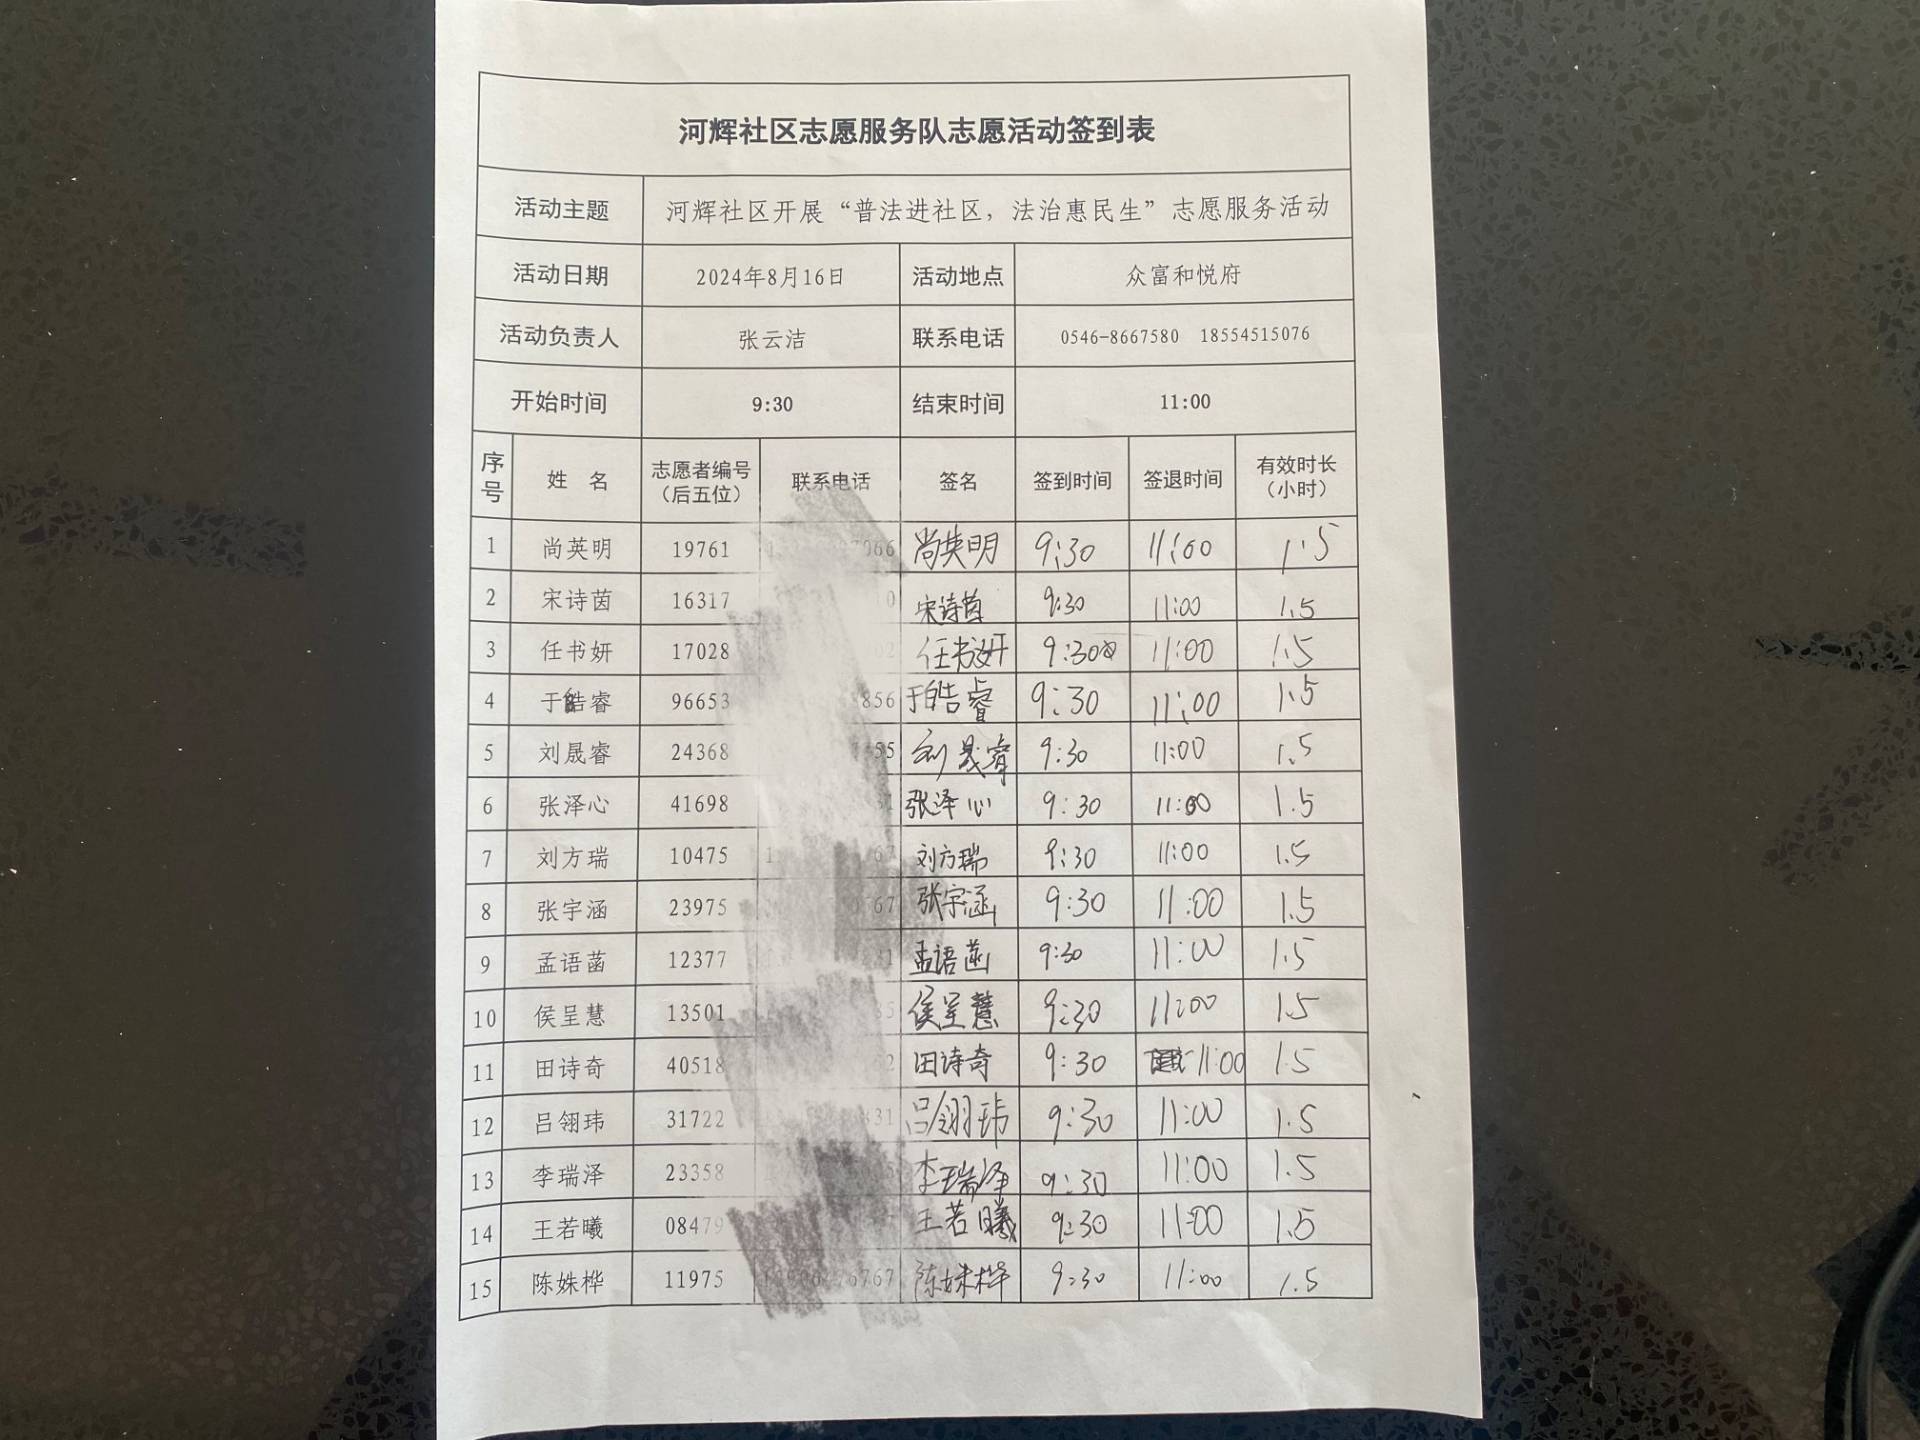 河辉社区志愿服务队志愿活动签到表
活动主题 河辉社区开展“普法进社区，法治惠民生”志愿服务活动
活动日期 2024年8月16日 活动地点 众富和悦府
活动负责人 张云洁 联系电话 0546-8667580 18554515076
开始时间 9:30 结束时间 11:00
序号 姓 名 志愿者编号（后五位） 联系电话 签名 签到时间 签退时间 有效时长（小时）
1 尚英明 19761 尚英明 9:30 11:00 1.5
2 宋诗茵 16317 宋诗茵 9:30 11:00 1.5
3 任书妍 17028 任书妍 9:30 11:00 1.5
4 于皓睿 96653 于皓睿 9:30 11:00 1.5
5 刘晟睿 24368 刘晟睿 9:30 11:00 1.5
6 张泽心 41698 张泽心 9:30 11:00 1.5
7 刘方瑞 10475 刘方瑞 9:30 11:00 1.5
8 张宇涵 23975 张宇涵 9:30 11:00 1.5
9 孟语菡 12377 孟语菡 9:30 11:00 1.5
10 侯呈慧 13501 侯呈慧 9:30 11:00 1.5
11 田诗奇 40518 田诗奇 9:30 11:00 1.5
12 吕翎玮 31722 吕翎玮 9:30 11:00 1.5
13 李瑞泽 23358 李瑞泽 9:30 11:00 1.5
14 王若曦 08479 王若曦 9:30 11:00 1.5
15 陈姝桦 11975 陈姝桦 9:30 11:00 1.5